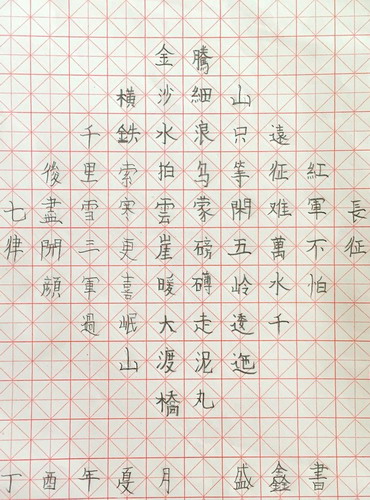 長征
紅軍不怕
遠征难萬水千
山只等閑五岭逶迤
騰細浪乌蒙磅礴走泥丸
金沙水拍雲崖暖大渡橋
橫鉄索寒更喜岷山
千里雪三軍過
後盡開顔
七律
丁酉年夏月 盛鑫書